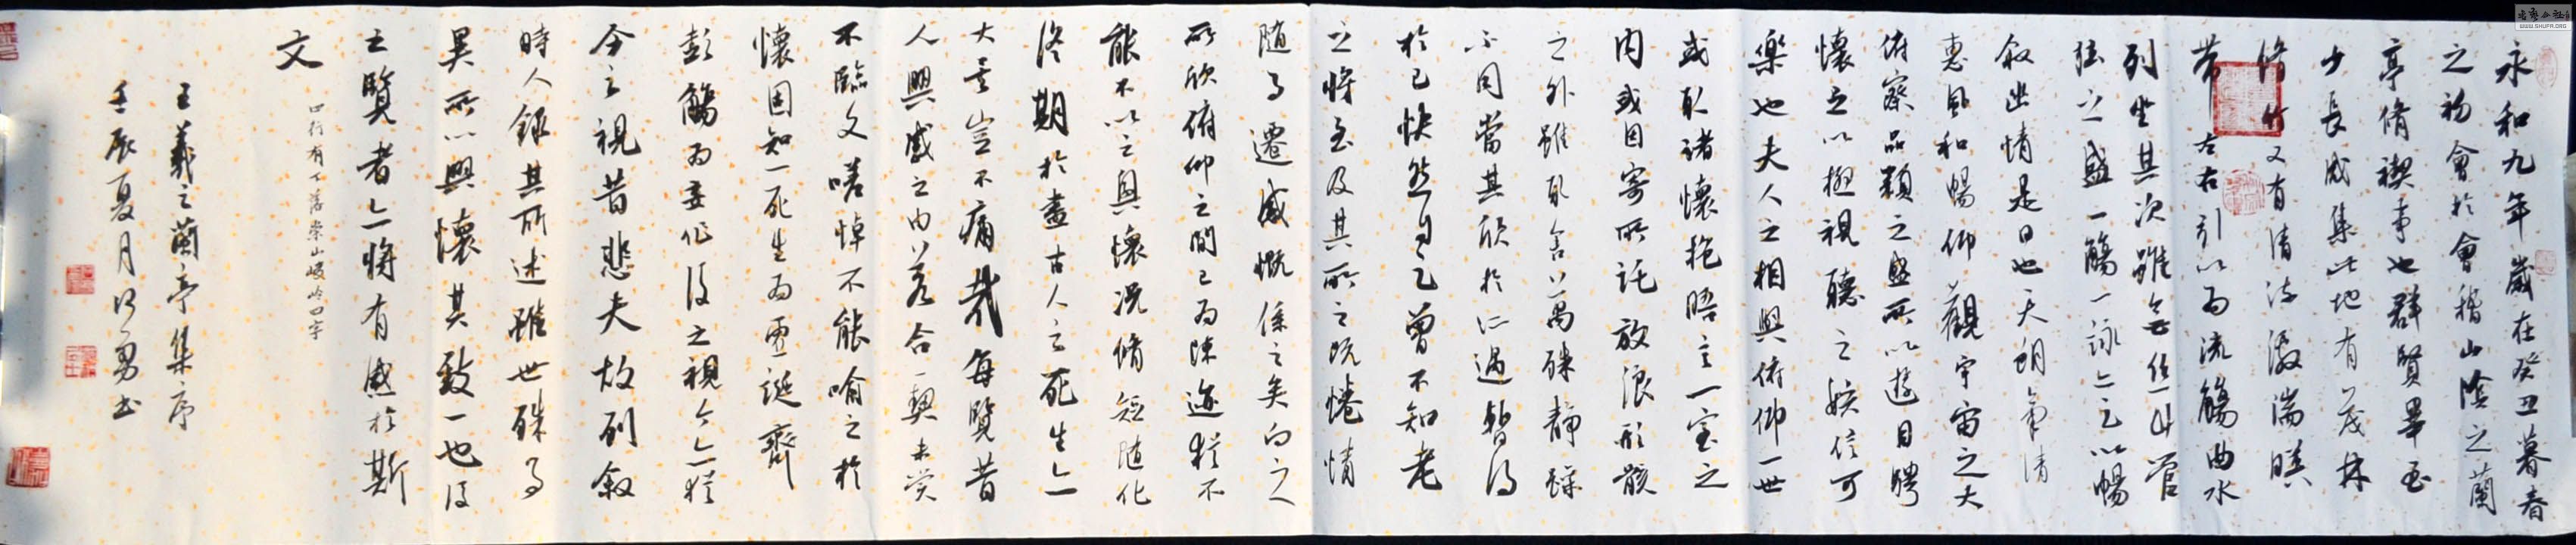 永和九年歲在癸丑暮春
之初會於會稽山陰之蘭
亭脩禊事也群賢畢至
少長咸集此地有茂林
脩竹又有清流激湍暎
帶左右引以為流觴曲水
列坐其次雖無絲竹管
弦之盛一觴一詠亦足以暢
敘幽情是日也天朗氣清
惠風和暢仰觀宇宙之大
俯察品類之盛所以遊目騁
懷足以極視聽之娛信可
樂也夫人之相與俯仰一世
或取諸懷抱晤言一室之
內或因寄所託放浪形骸
之外雖取舍萬殊靜躁
不同當其欣於所遇暫得
於己快然自足曾不知老
之將至及其所之既惓情
隨事遷感慨係之矣向之
所欣俯仰之間已為陳迹猶不
能不以之興懷況脩短隨化
終期於盡古人云死生亦
大矣豈不痛哉每覽昔
人興感之由若合一契未嘗
不臨文嗟悼不能喻之於
懷固知一死生為虛誕齊
彭觴為妄作後之視今亦猶
今之視昔悲夫故列敘
時人錄其所述雖世殊事
異所以興懷其致一也後
之覽者亦將有感於斯
文
四行有下落崇山峻岭四字
王羲之蘭亭集序
壬辰夏月 勇书
WWW.SHUFA.ORG